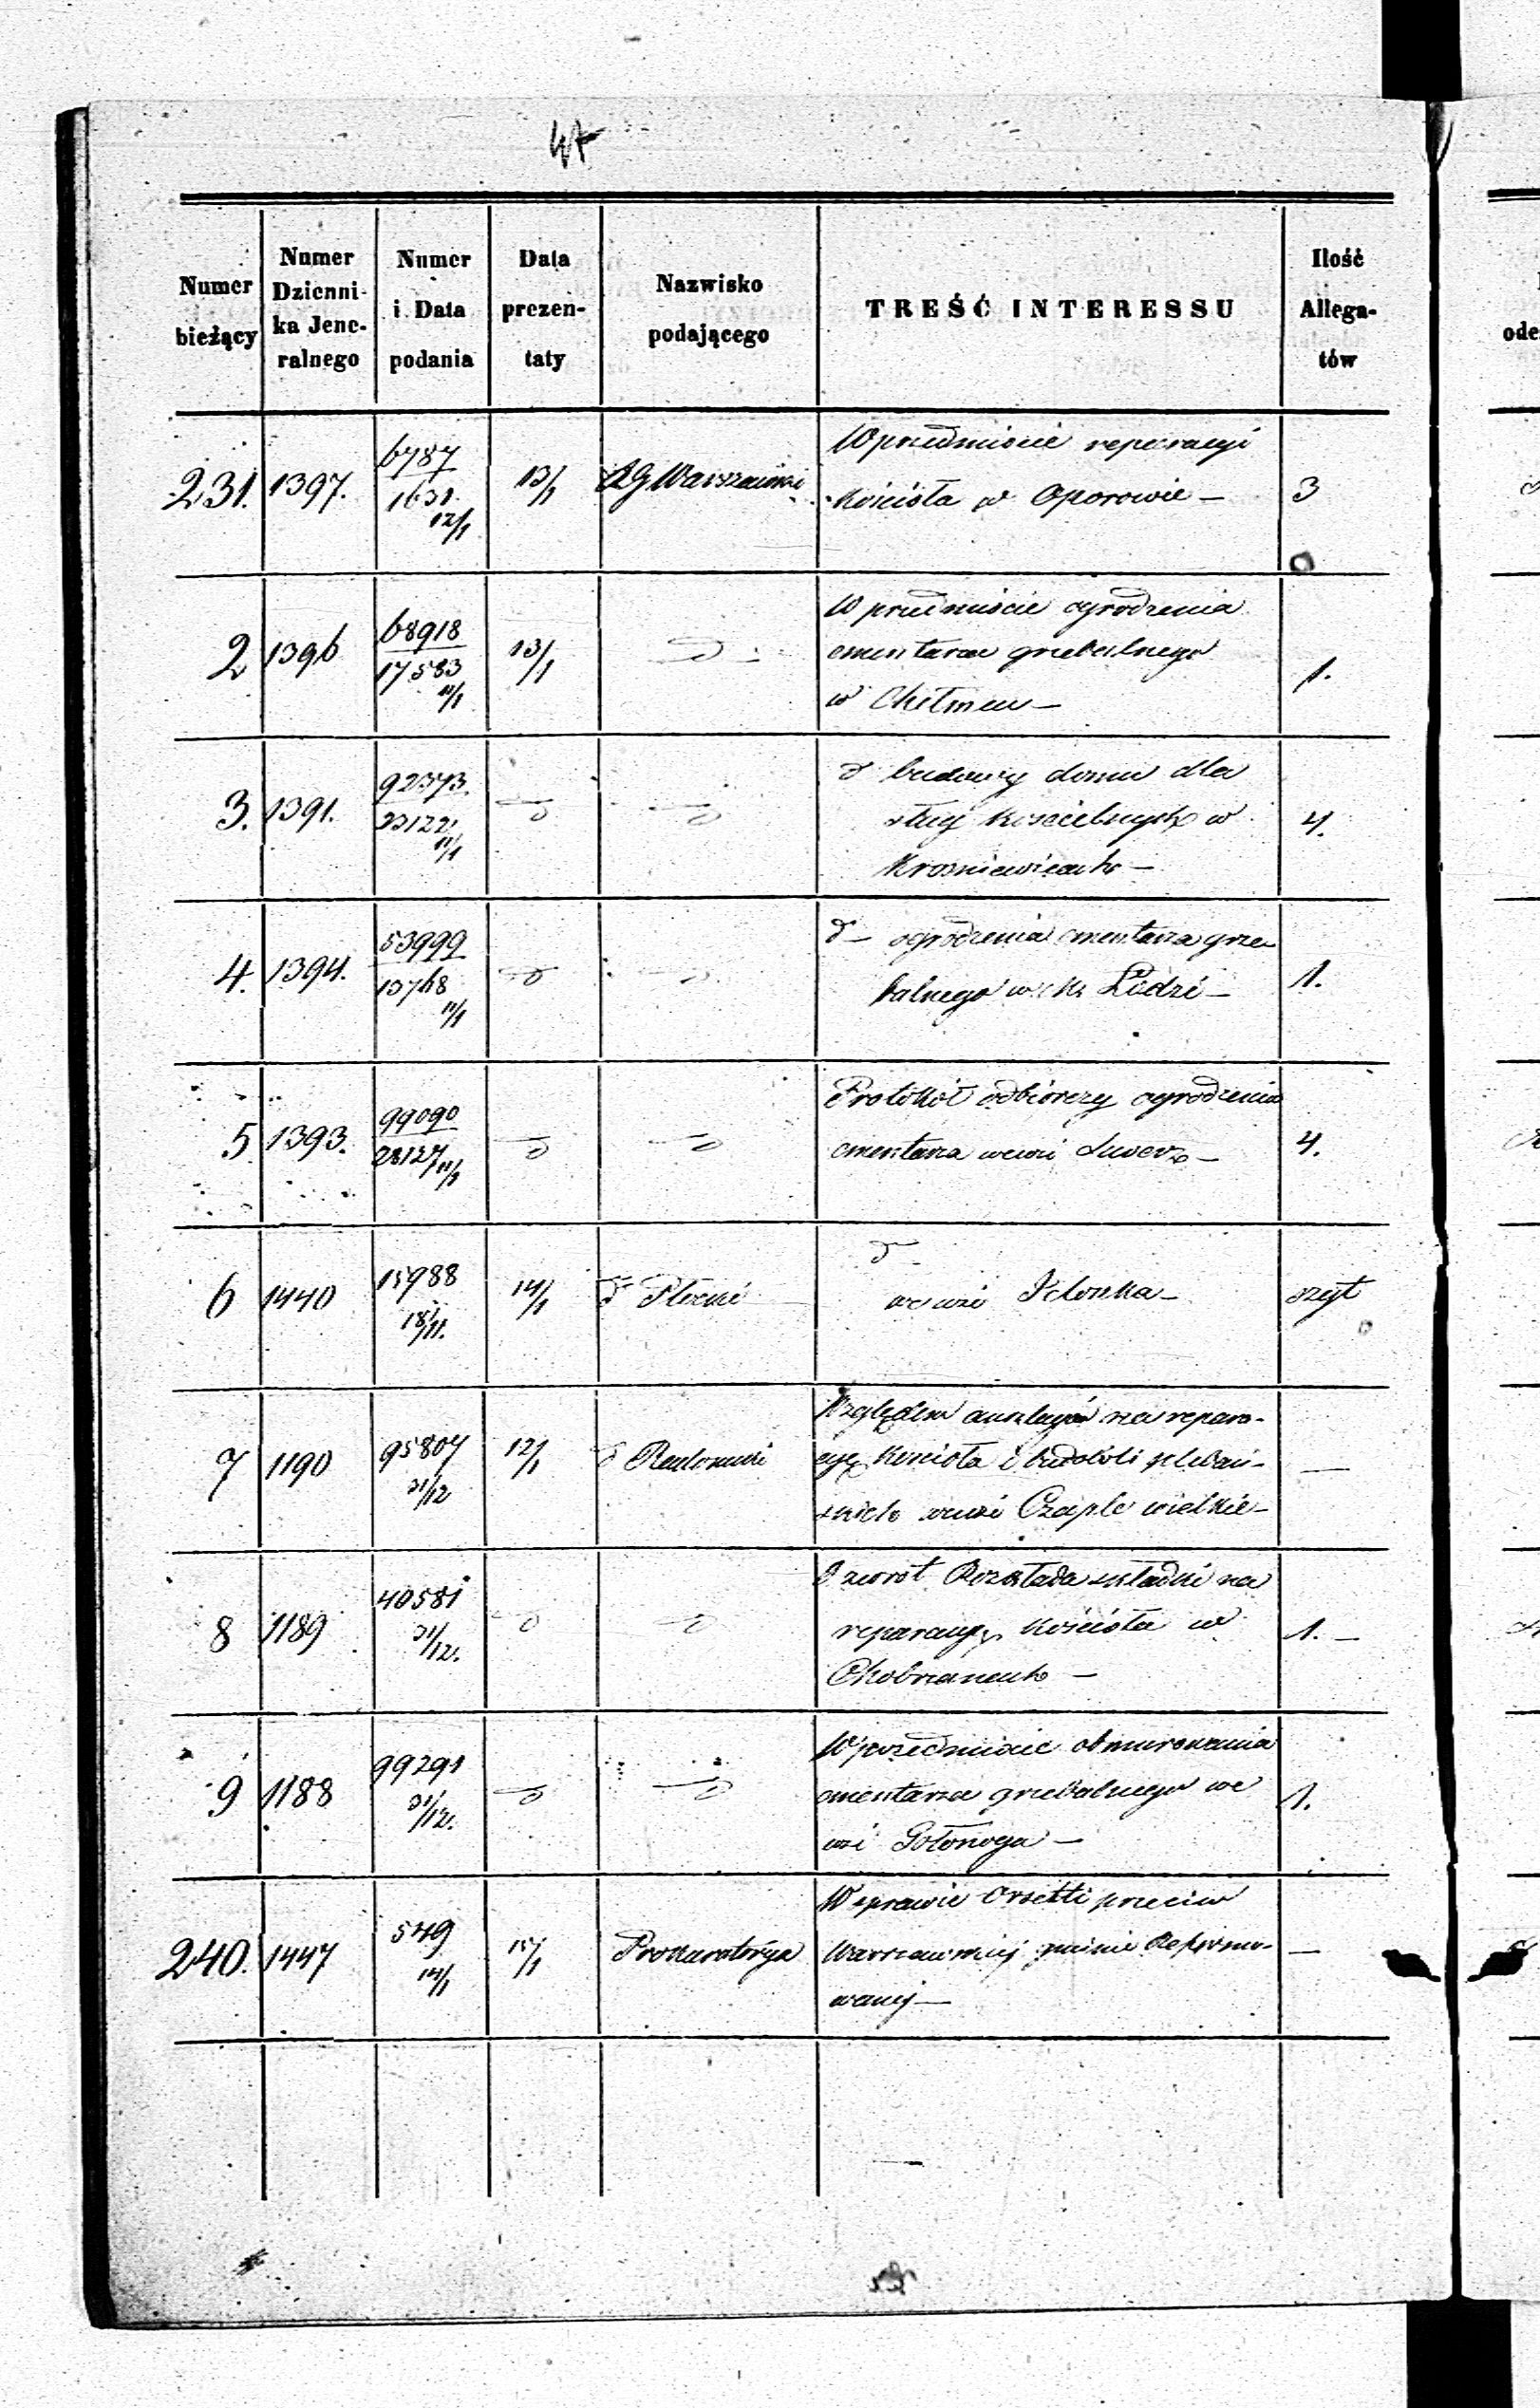 47
Numer bieżący | Numer Dzienni-ka Jene-ralnego | Numer i Data podania | Data prezen-taty | Nazwisko podającego | TREŚĆ INTERESSU | Ilość Allega-tów
231. | 1397. | 6787 / 1631. 12/1 | 13/1 | RG Warszawski | W przedmiocie reparacyi
kościoła w Oporowie — | 3
2 | 1396 | 68918 / 17583 11/1 | 13/1 | d | W przedmiocie ogrodzenia
cmentarza grzebalnego
w Chełmcu — | 1.
3. | 1391. | 92373. / 23122. 11/1 | d | d | d budowy domu dla
sług kościelnych w
Krośniewicach — | 4.
4. | 1394. | 53999 / 13768 11/1 | d | d | d — ogrodzenia cmentarza grze
balnego w Łodzi — | 1.
5 | 1393. | 99090 / 28127 11/1 | d | d | Protokół odbiorczy ogrodzenia
cmentarza we wsi — | 4.
6 | 1440 | 15988 18/11. | 14/1 | d Płocki | d
we wsi Jelonka — | szyt
7 | 1190 | 95807 31/12 | 12/1 | d Radomski | Względem na repara-
cyę Kościoła i budowli plebań-
skich we wsi Czaple wielkie — | —
8 | 1189 | 40581 31/12. | d | d | Zwrot Rozkłada składki na
reparacyę kościoła w
Chobrzanach — | 1. —
9 | 1188 | 99291 31/12. | d | d | W przedmiocie obmurowania
cmentarza grzebalnego we
wsi Gołonoga — | 1.
240. | 1447 | 549 14/1 | 15/1 | Prokuratorya | W sprawie Orsetti przeciw
Warszawskiej gminie Reformo-
wanej — | —